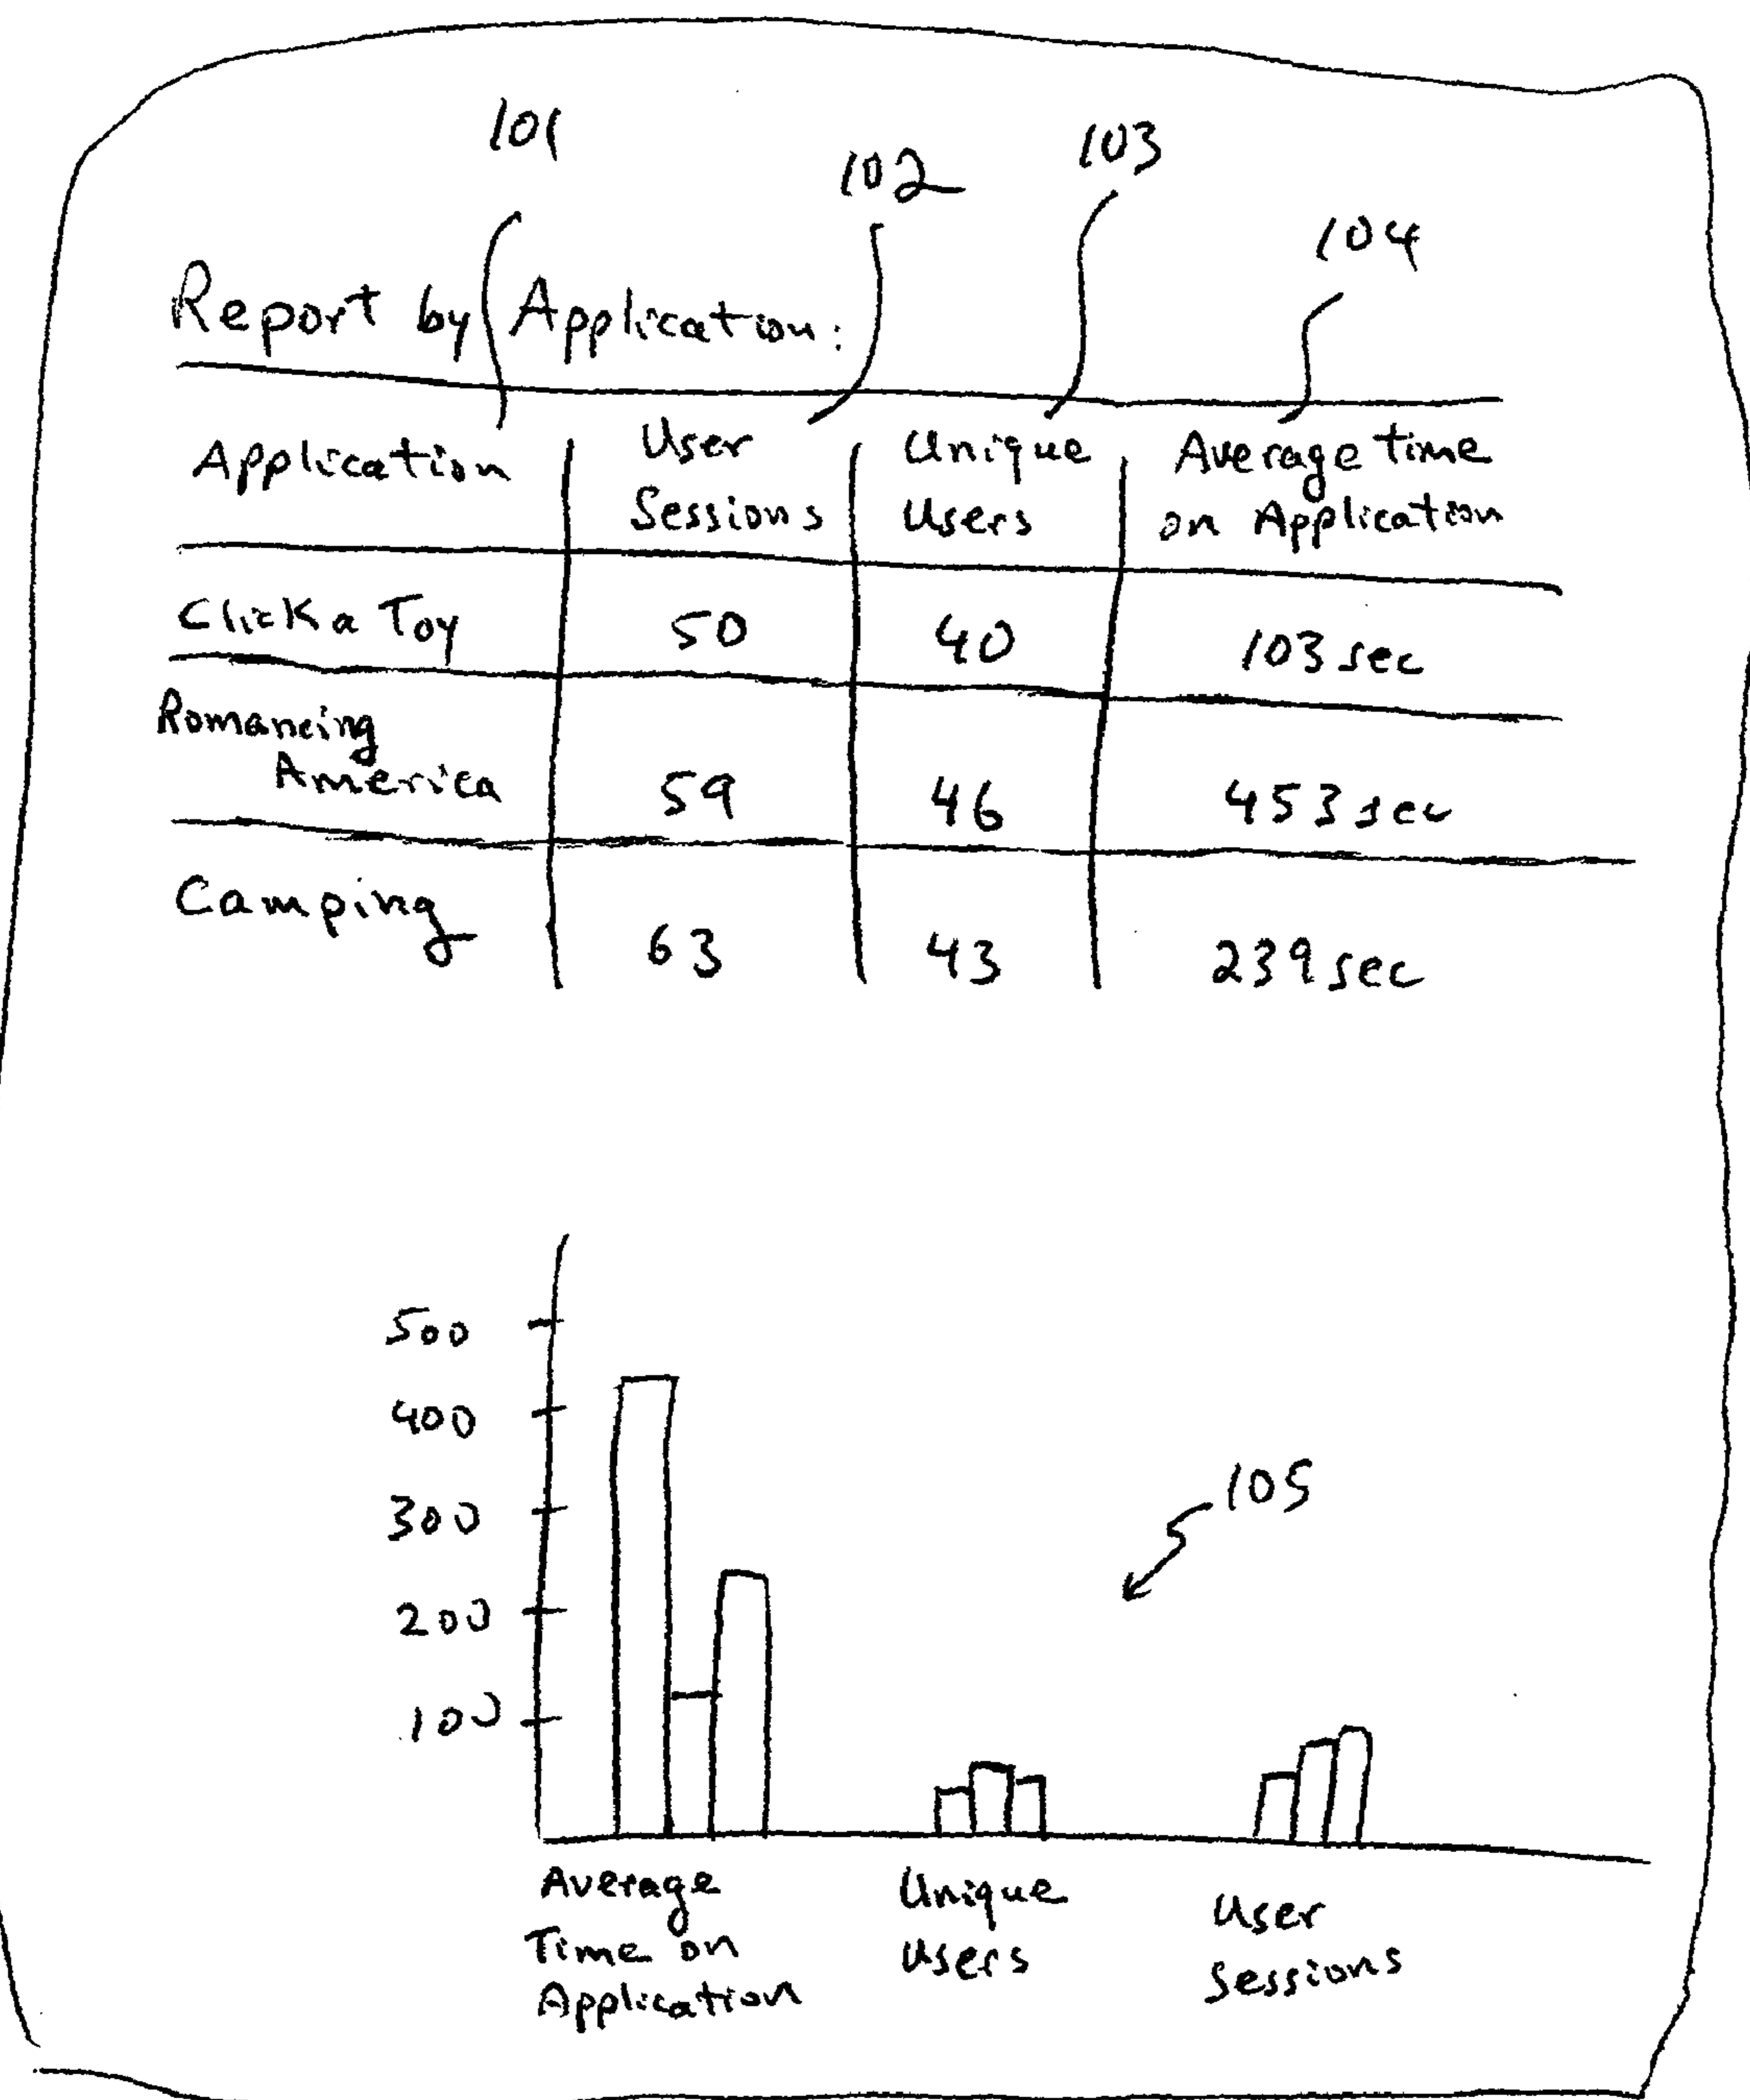 101
102
103
104
Report by Application:
Application
User
Sessions
Unique
Users
Average time
on Application
Click a Toy
50
40
103 sec
Romancing
America
59
46
453 sec
Camping
63
43
239 sec
500
400
300
200
100
105
Average
Time on
Application
Unique
Users
User
Sessions